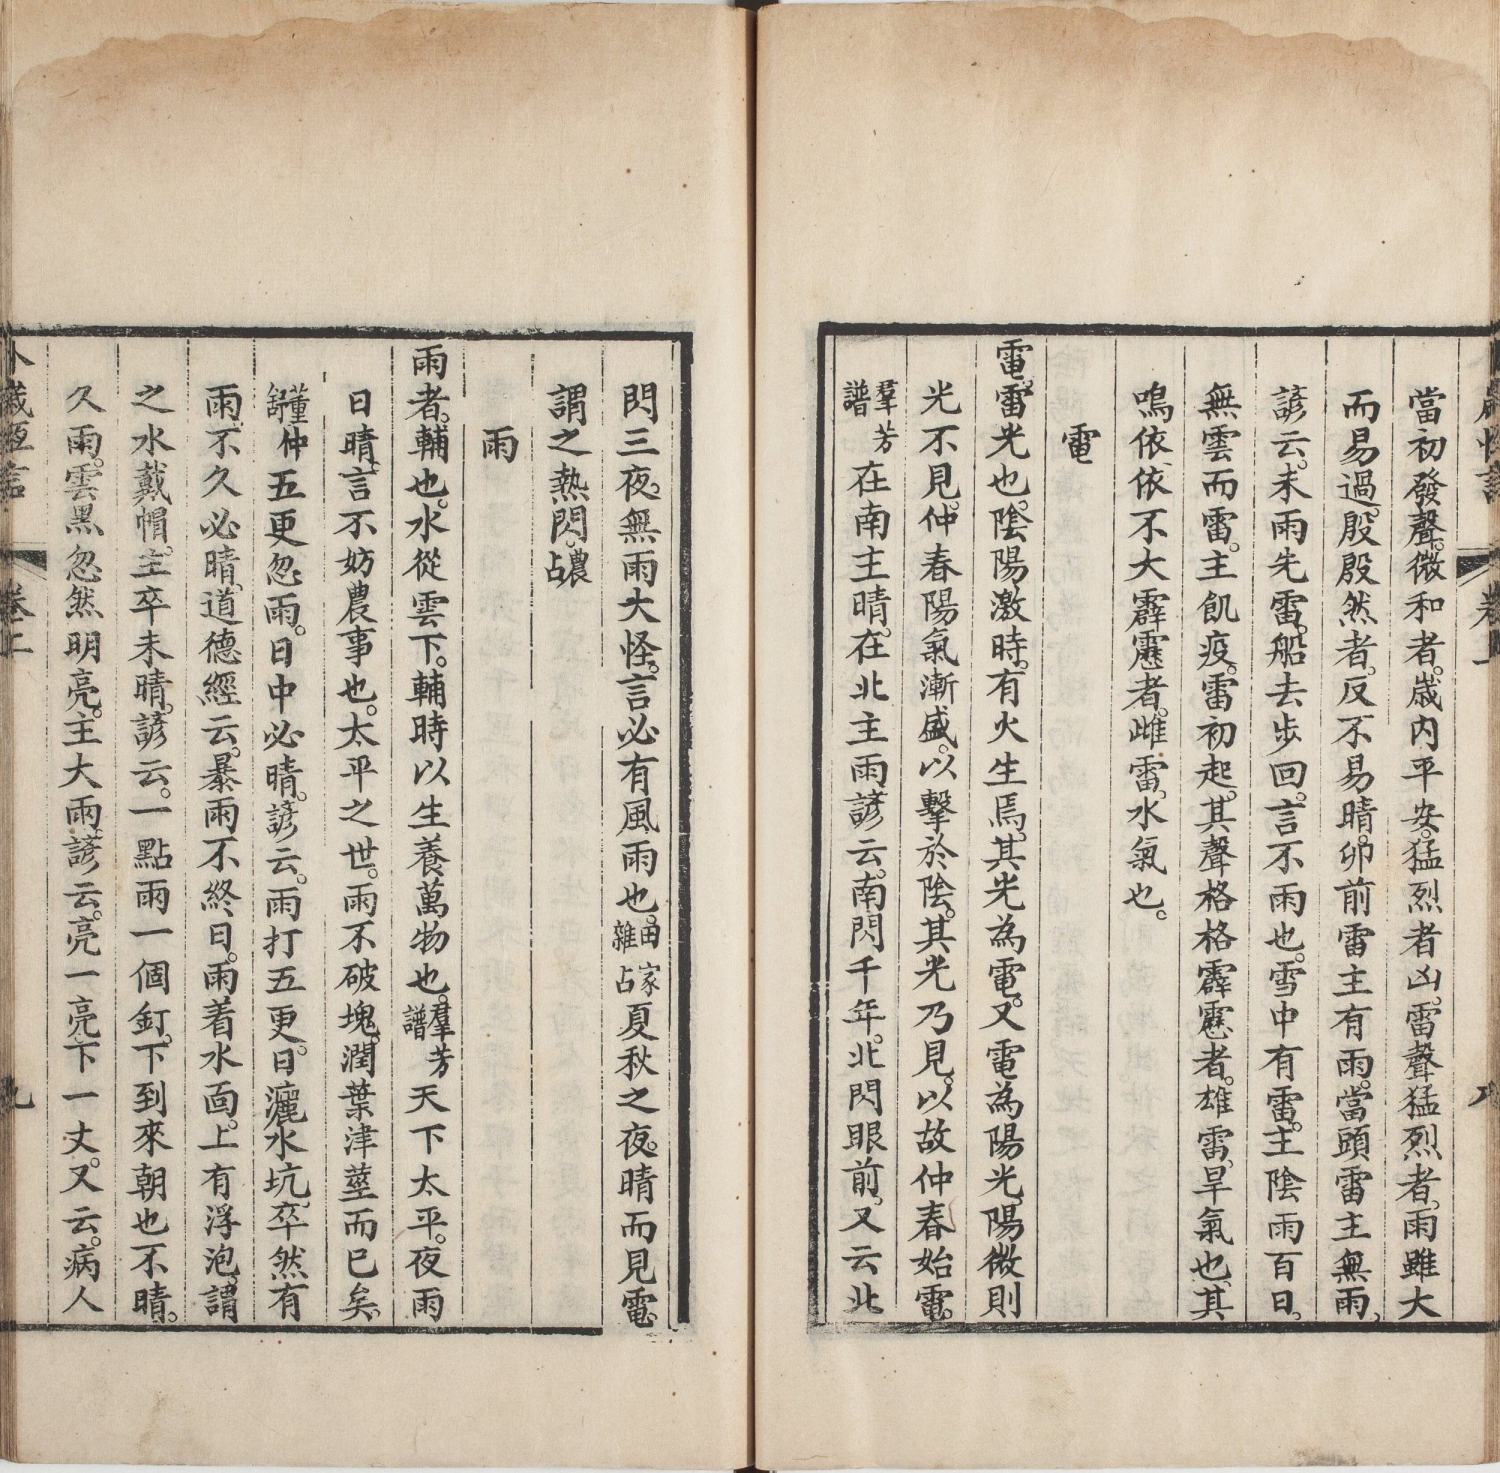 當初發聲。微和者。歲内平安。猛烈者凶。雷聲猛烈者。雨雖大
而易過。殷殷然者。反不易晴。卯前雷主有雨。當頭雷主無雨、
諺云。未雨先雷。船去步回。言不雨也。雪中有雷。主陰雨百日。
無雲而雷。主飢疫。雷初起。其聲格格霹靂者。雄雷。旱氣也。其
鳴依依。不大霹靂者。雌雷。水氣也。
電
電。雷光也。陰陽激時。有火生焉。其光為電。又電為陽光。陽微則
光不見。仲春陽氣漸盛。以擊於陰。其光乃見。以故仲春始電。
羣芳譜在南主晴。在北主雨。諺云。南閃千年。北閃眼前。又云北
閃三夜。無雨大怪。言必有風雨也。田家雜占夏秋之夜。晴而見電。
謂之熱閃。農占
雨
雨者。輔也。水從雲下。輔時以生養萬物也。羣芳譜天下太平。夜雨
日晴。言不妨農事也。太平之世。雨不破塊。潤葉津莖而已矣。
董仲舒五更忽雨。日中必晴。諺云。雨打五更。日灑水坑。卒然有
雨。不久必晴。道德經云。暴雨不終日。雨着水面。上有浮泡。謂
之水戴帽。主卒未晴。諺云。一點雨一個釘。下到來朝也不晴。
久雨。雲黑忽然明亮。主大雨。諺云。亮一亮。下一丈。又云。病人
卷上
九